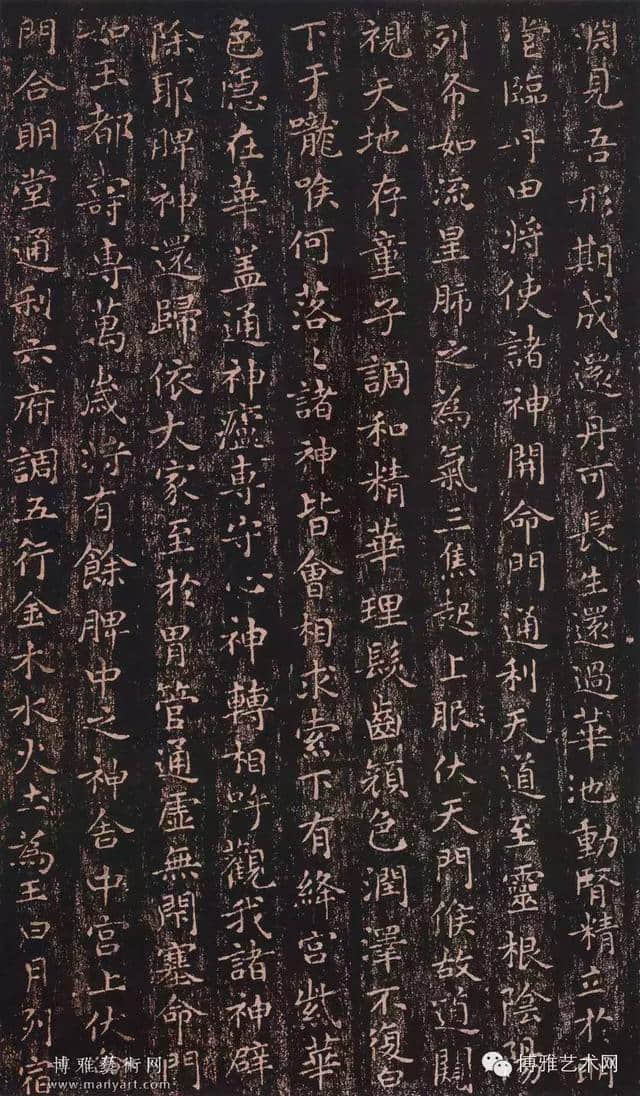 淵見吾形期成還丹可長生還過華池動腎精立於明
堂臨丹田將使諸神開命門通利天道至靈根陰陽
列布如流星肺之為氣三焦起上服伏天門候故道闚
視天地存童子調和精華理髮齒顏色潤澤不復白
下于嚨喉何落〻諸神皆會相求索下有絳宮紫華
色隱在華蓋通神廬專守心神轉相呼觀我諸神辟
除耶脾神還歸依大家至於胃管通虛無閉塞命門
如玉都壽專萬歲將有餘脾中之神舍中宮上伏
門合明堂通利六府調五行金木水火土為王日月列宿
博雅藝術网
www.mariyart.com
博雅艺术网